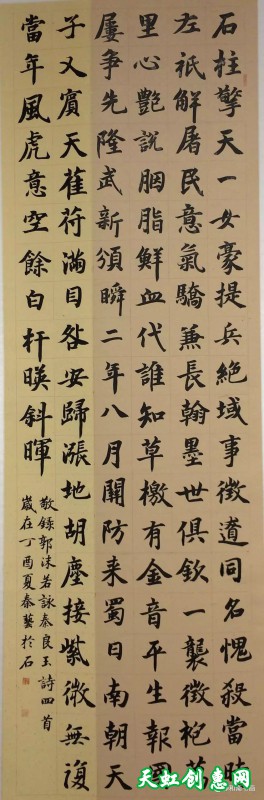 石柱擎天一女豪提兵絕域事徵遼同名愧殺當時
左祇解屠民意氣驕兼長翰墨世俱欽一襲徵袍萬
里心艷說胭脂鮮血代誰知草檄有金音平生報國
屢爭先隆武新頒瞬二年八月關防來蜀日南朝天
子又賓天萑苻滿目咎安歸漲地胡塵接紫微無復
當年風虎意空餘白杆暎斜暉
敬錄郭沫若詠秦良玉詩四首
歲在丁酉夏秦藝於石
天虹创意网